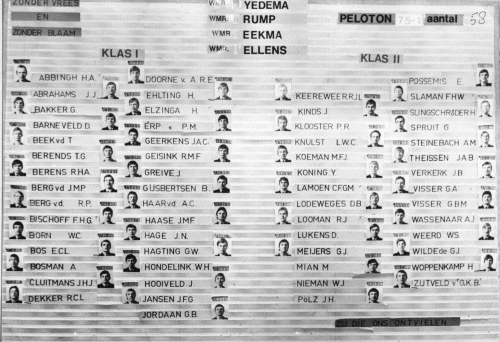 ZONDER VREES
EN
ZONDER BLAAM
YEDEMA
WMR. RUMP
WMR. EEKMA
WMR. ELLENS
PELOTON 75-1 aantal 58
KLAS I
ABBINGH H.A.
ABRAHAMS J.J.
BAKKER G.
BARNEVELD D.
BEEK v.d. T.
BERENDS T.G.
BERENS R.H.A.
BERG v.d. J.M.P.
BERG v.d. R.P.
BISCHOFF F.H.G.
BORN W.C.
BOS E.C.L.
BOSMAN A.
CLUITMANS J.H.J.
DEKKER R.C.L.
DOORNE v. A.R.E.
EHLTING H.
ELZINGA H.
ERP v. P.M.
GEERKENS J.A.C.
GEISINK R.M.F.
GREIVE J.
GIJSBERTSEN B.
HAAR v.d. A.C.
HAASE J.M.F.
HAGE J.N.
HAGTING G.W.
HONDELINK W.H.
HOOIVELD J.
JANSEN J.F.G.
JORDAAN G.B.
KLAS II
KEEREWEER R.R.J.L.
KINDS J.
KLOOSTER P.R.
KNULST L.W.C.
KOEMAN M.F.J.
KONING Y.
LAMOEN C.F.G.M.
LODEWEGES D.B.
LOOMAN R.J.
LUKENS D.
MEIJERS G.J.
MIAN M.
NIEMAN W.J.
PÖLZ J.H.
POSSEMIS E.
SLAMAN F.H.W.
SLINGSCHRÖDER H.
SPRUIT G.
STEINEBACH A.M.
THEISSEN J.A.B.
VERKERK J.B.
VISSER G.A.
VISSER G.B.M.
WASSENAAR A.J.
WEERD W.S.
WILDE de G.J.
WOPPENKAMP H.
ZIJTVELD v. G.K.B.
ZIJ DIE ONS ONTVIELEN